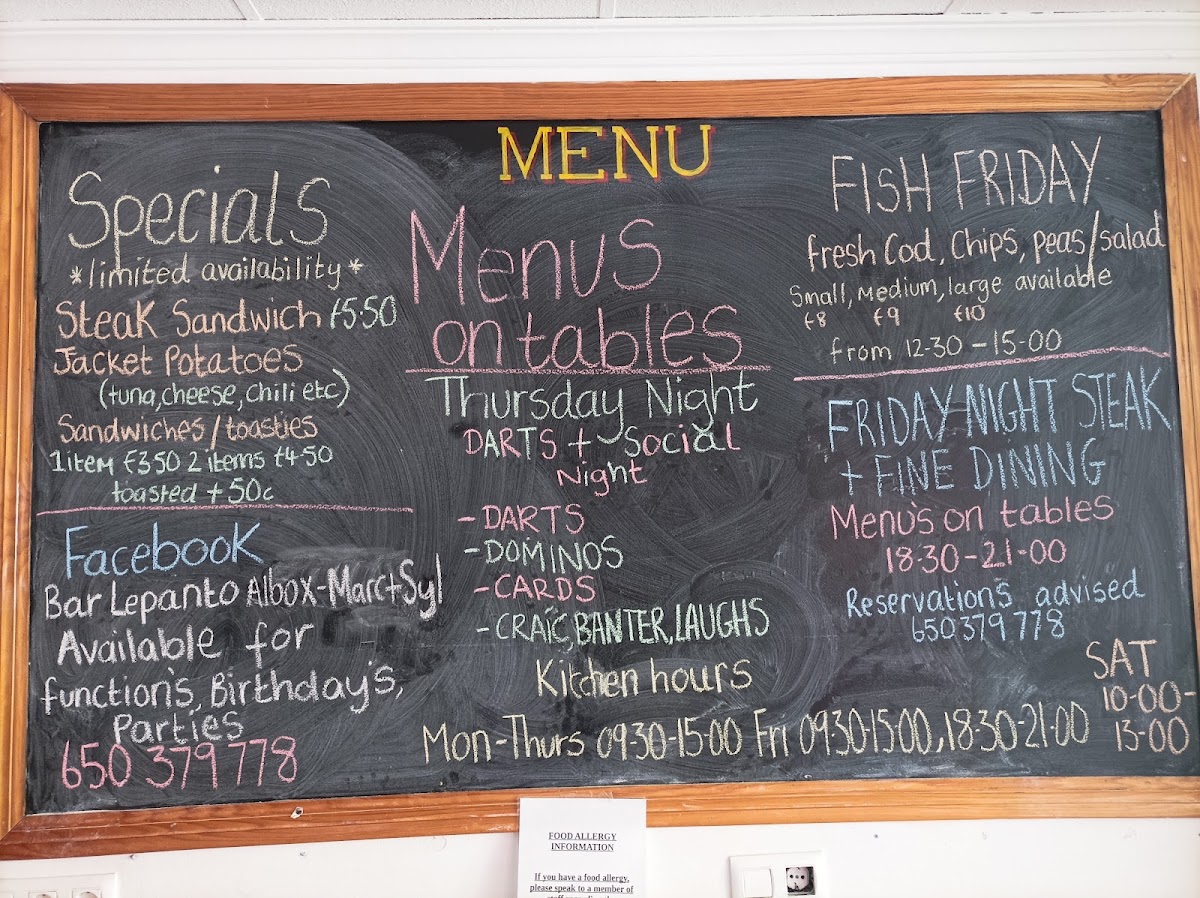 MENU
Specials
*limited availability*
Steak Sandwich €5·50
Jacket Potatoes
(tuna, cheese, chili etc)
Sandwiches/toasties
1 item €3·50 2 items €4-50
toasted + 50c
Facebook
Bar Lepanto Albox-Marc+Syl
Available for
function's, Birthday's,
Parties
650 379 778
Menus
on tables
Thursday Night
DARTS + Social
Night
- DARTS
- DOMINOS
- CARDS
- CRAIC, BANTER, LAUGHS
Kitchen hours
Mon-Thurs 09·30-15·00 Fri 09·30-15·00, 18·30-21·00
FISH FRIDAY
Fresh Cod, Chips, Peas/Salad
Small, Medium, large available
€8 €9 €10
from 12-30 - 15-00
FRIDAY NIGHT STEAK
+ FINE DINING
Menu's on tables
18·30-21-00
Reservation's advised
650 379 778
SAT
10-00-
13-00
FOOD ALLERGY
INFORMATION
If you have a food allergy,
please speak to a member of